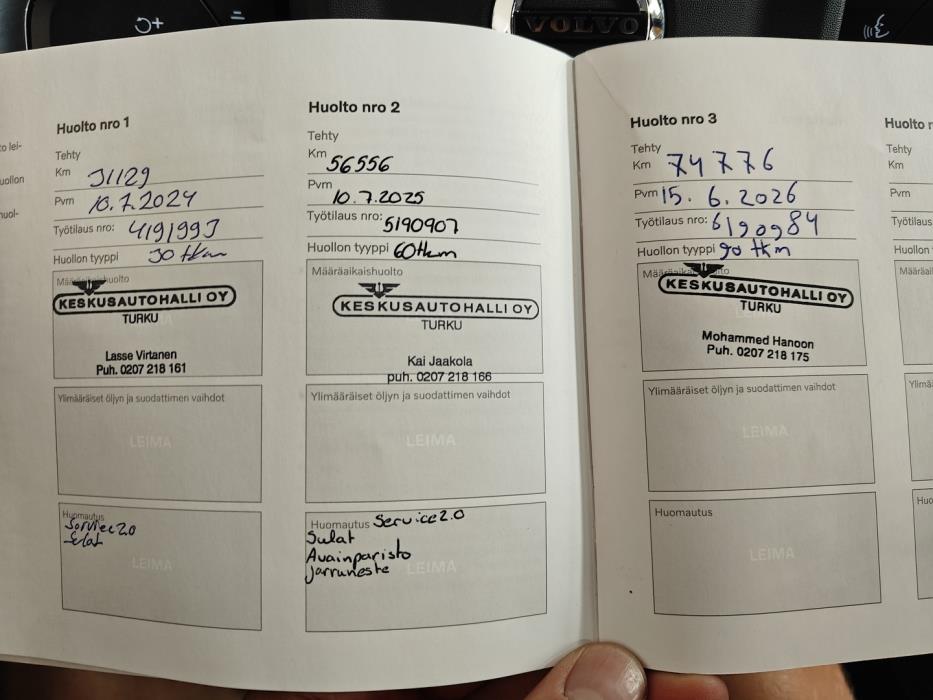 VOLVO
to lei-
uollon
huol-
Huolto nro 1
Tehty
Km 31129
Pvm 10.7.2024
Työtilaus nro: 4191993
Huollon tyyppi 30 tkm
Määräaikaishuolto
KESKUSAUTOHALLI OY
TURKU
Lasse Virtanen
Puh. 0207 218 161
Ylimääräiset öljyn ja suodattimen vaihdot
LEIMA
Huomautus
Service 2.0
Sulat
LEIMA
Huolto nro 2
Tehty
Km 56556
Pvm
10.7.2025
Työtilaus nro: 5190907
Huollon tyyppi 60tkm
Määräaikaishuolto
KESKUSAUTOHALLI OY
TURKU
Kai Jaakola
puh. 0207 218 166
Ylimääräiset öljyn ja suodattimen vaihdot
LEIMA
Huomautus Service 2.0
Sulat
Avainparisto
Jarruneste
LEIMA
Huolto nro 3
Tehty
Km 74776
Pvm 15.6.2026
Työtilaus nro: 6190984
Huollon tyyppi 90 tkm
Määräaikaishuolto
KESKUSAUTOHALLI OY
TURKU
Mohammed Hanoon
Puh. 0207 218 175
Ylimääräiset öljyn ja suodattimen vaihdot
LEIMA
Huomautus
LEIMA
Huolto n
Tehty
Km
Pvm
Työtilaus
Huollon
Määräai
Ylimää
Huo